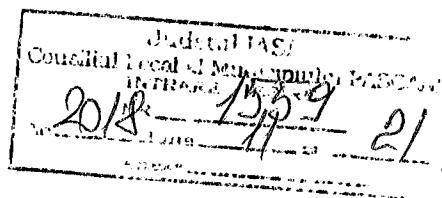 Judetul IASI
Consiliul Local al Municipiului PASCANI
INTRARE 1559
2018 Luna 11 zi 21